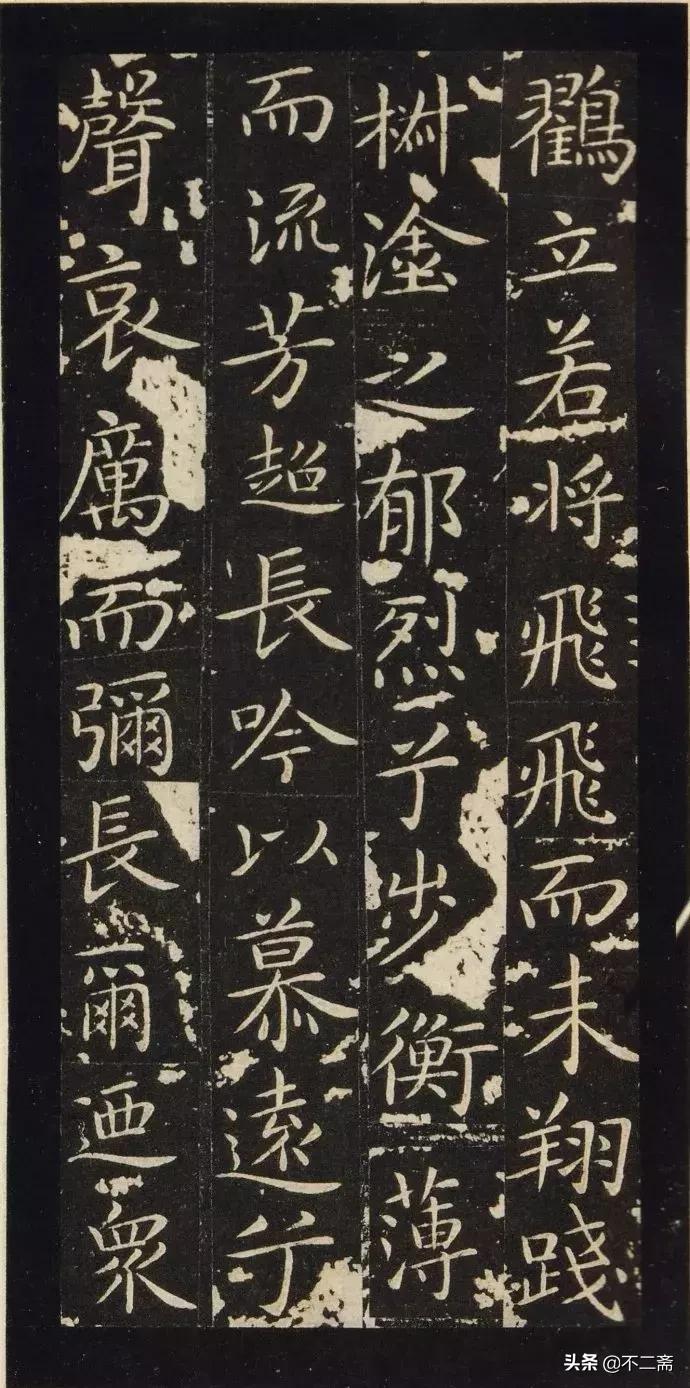 鸛立若将飛飛而未翔踐
椒塗之郁烈兮步衡薄
而流芳超長吟以慕遠兮
聲哀厲而彌長爾迺衆
头条 @不二斋